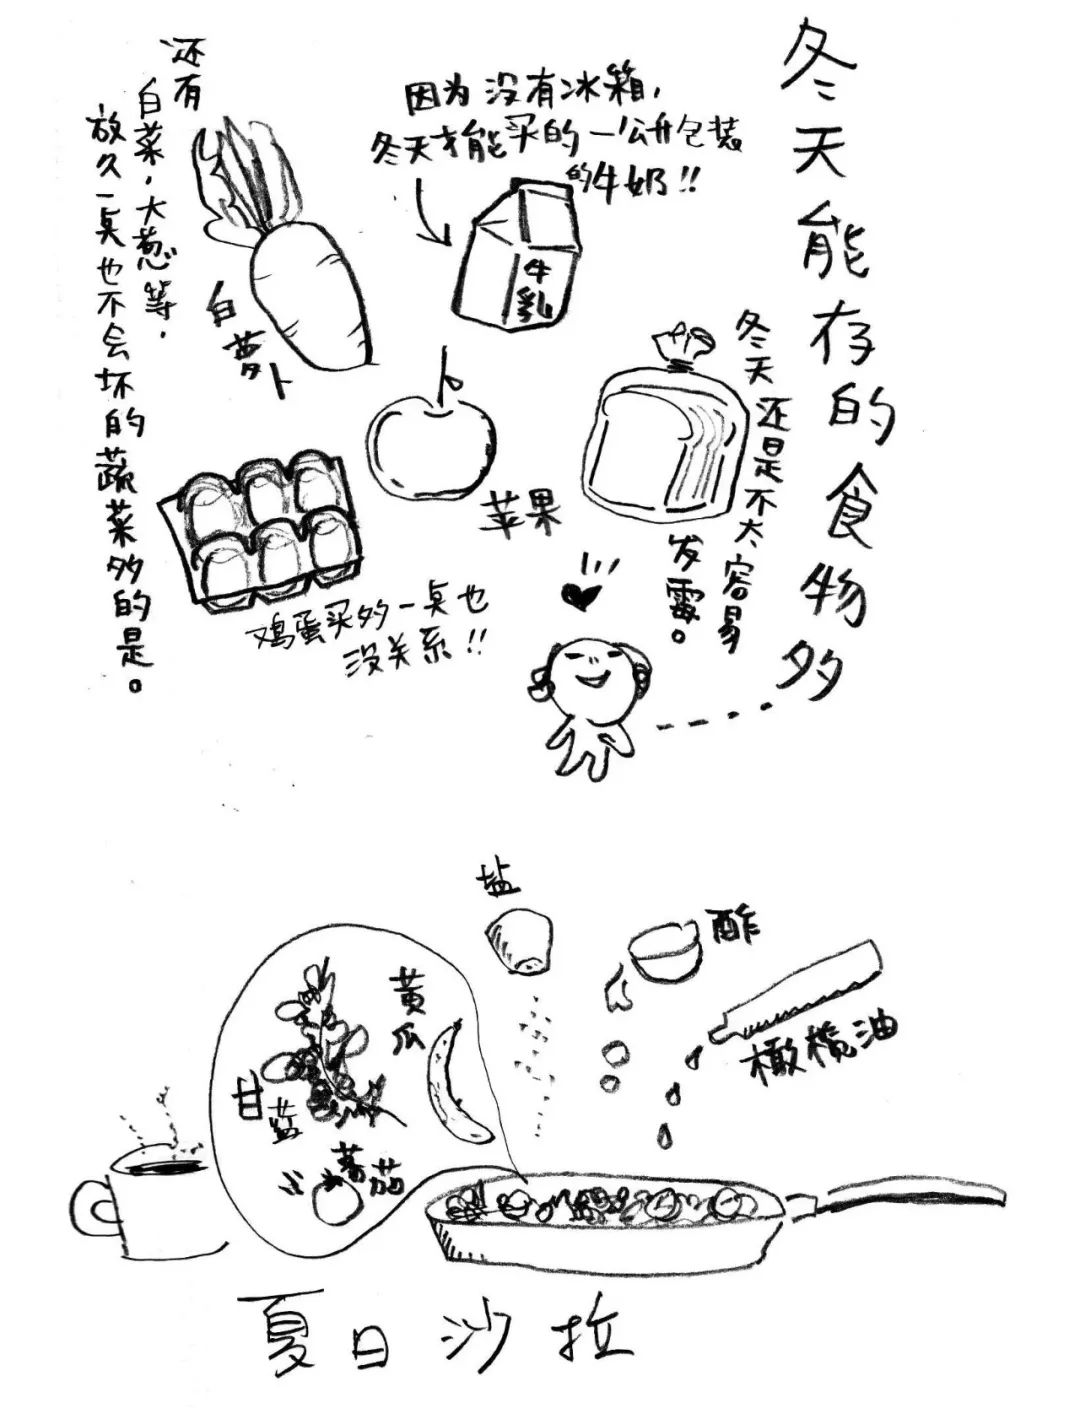 冬天能存的食物多
因为没有冰箱，
冬天才能买的一公升包装
的牛奶!!
牛
乳
冬天还是不太容易
发霉。
还有
白菜，大葱等，
放久一点也不会坏的蔬菜多的是。
白萝卜
苹果
鸡蛋买多一点也
没关系!!
盐
醋
橄榄油
黄瓜
甘蓝
蕃茄
夏日沙拉